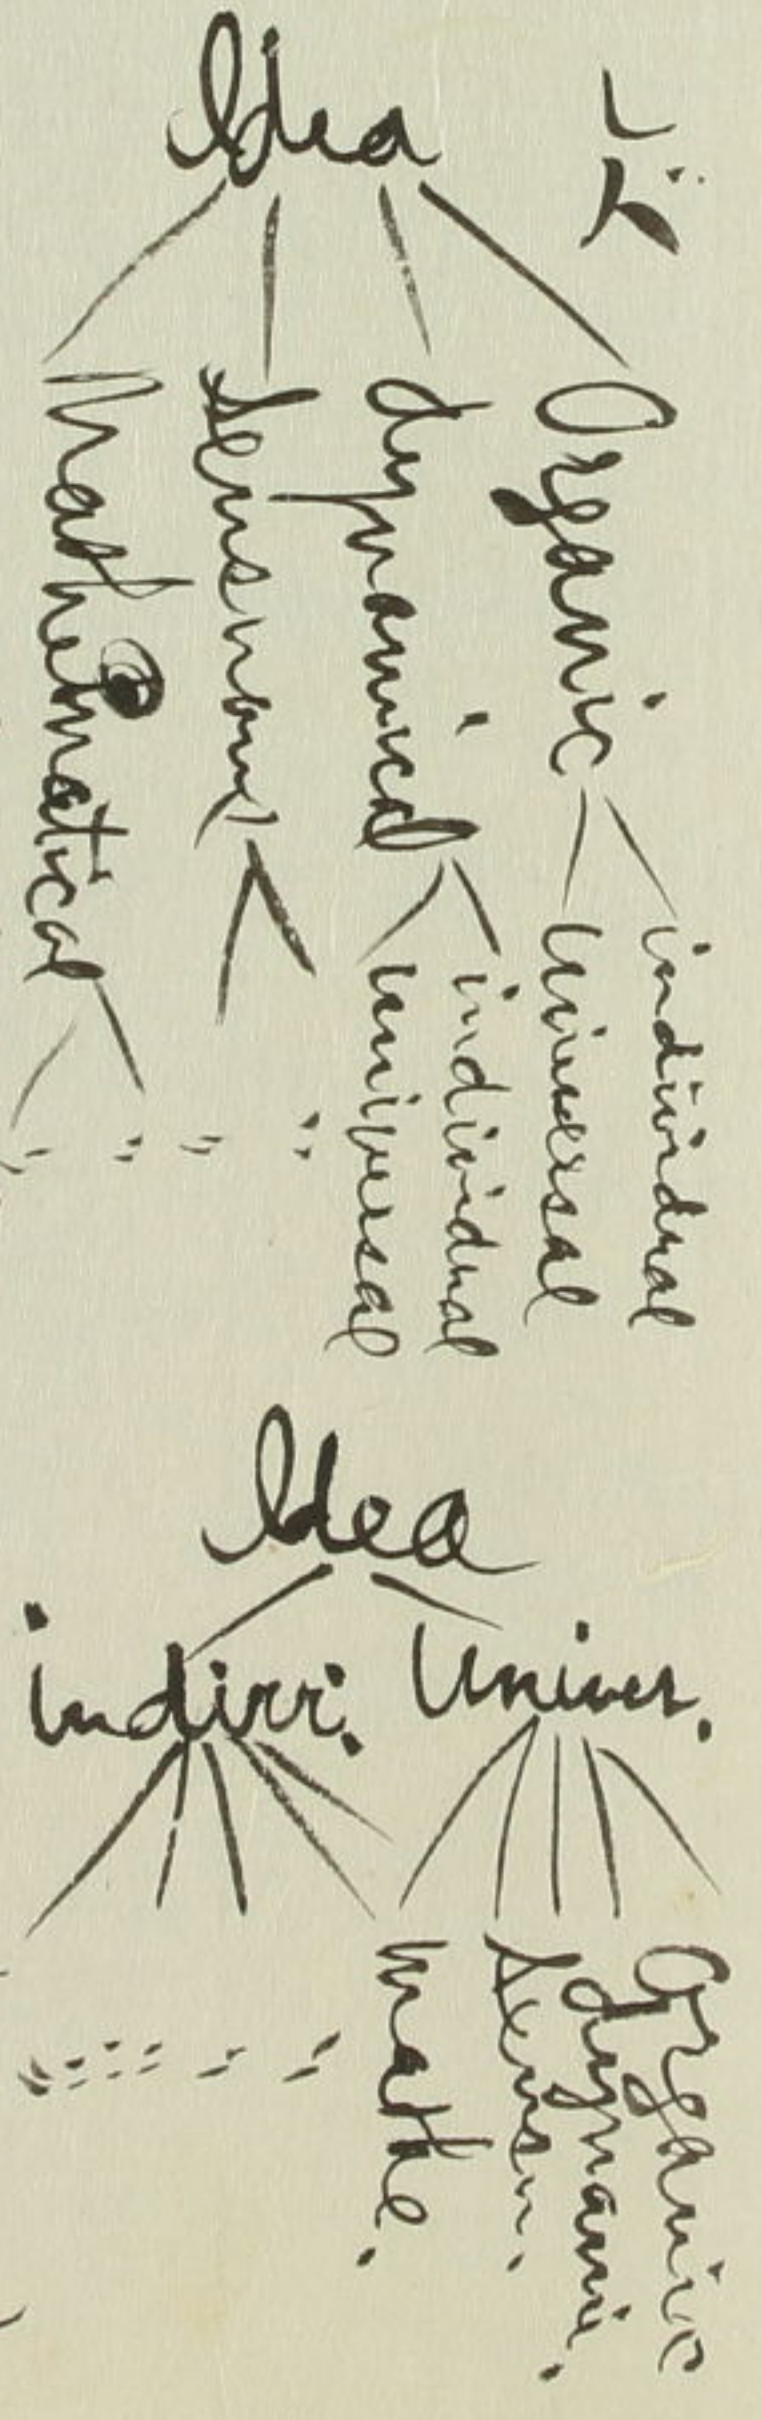 Idea
Organic
individual
universal
dynamical
individual
universal
sensuous
mathematical
Idea
Univer.
indivi.
Organic
dynami.
sensu.
mathe.